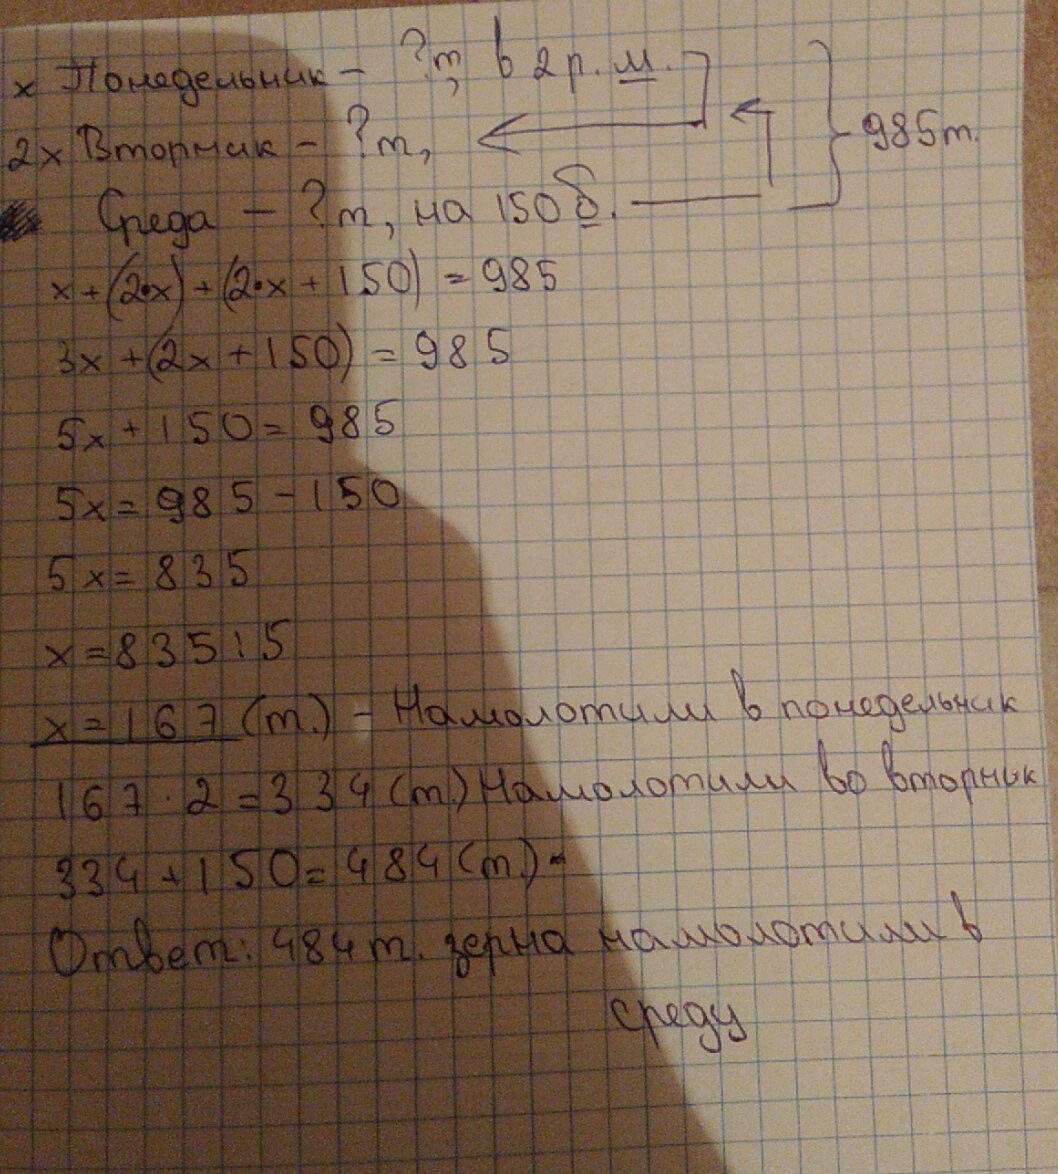 x Понедельник - ?т, в 2 р. м.
2x Вторник - ?т,
985т.
Среда - ?т, на 150 б.
x+(2•x)+(2•x+150)=985
3x+(2x+150)=985
5x+150=985
5x=985-150
5x=835
x=835:5
x=167(т.) - Намолотили в понедельник
167·2=334(т.) Намолотили во вторник
334+150=484(т.)-
Ответ: 484т. зерна намолотили в
среду